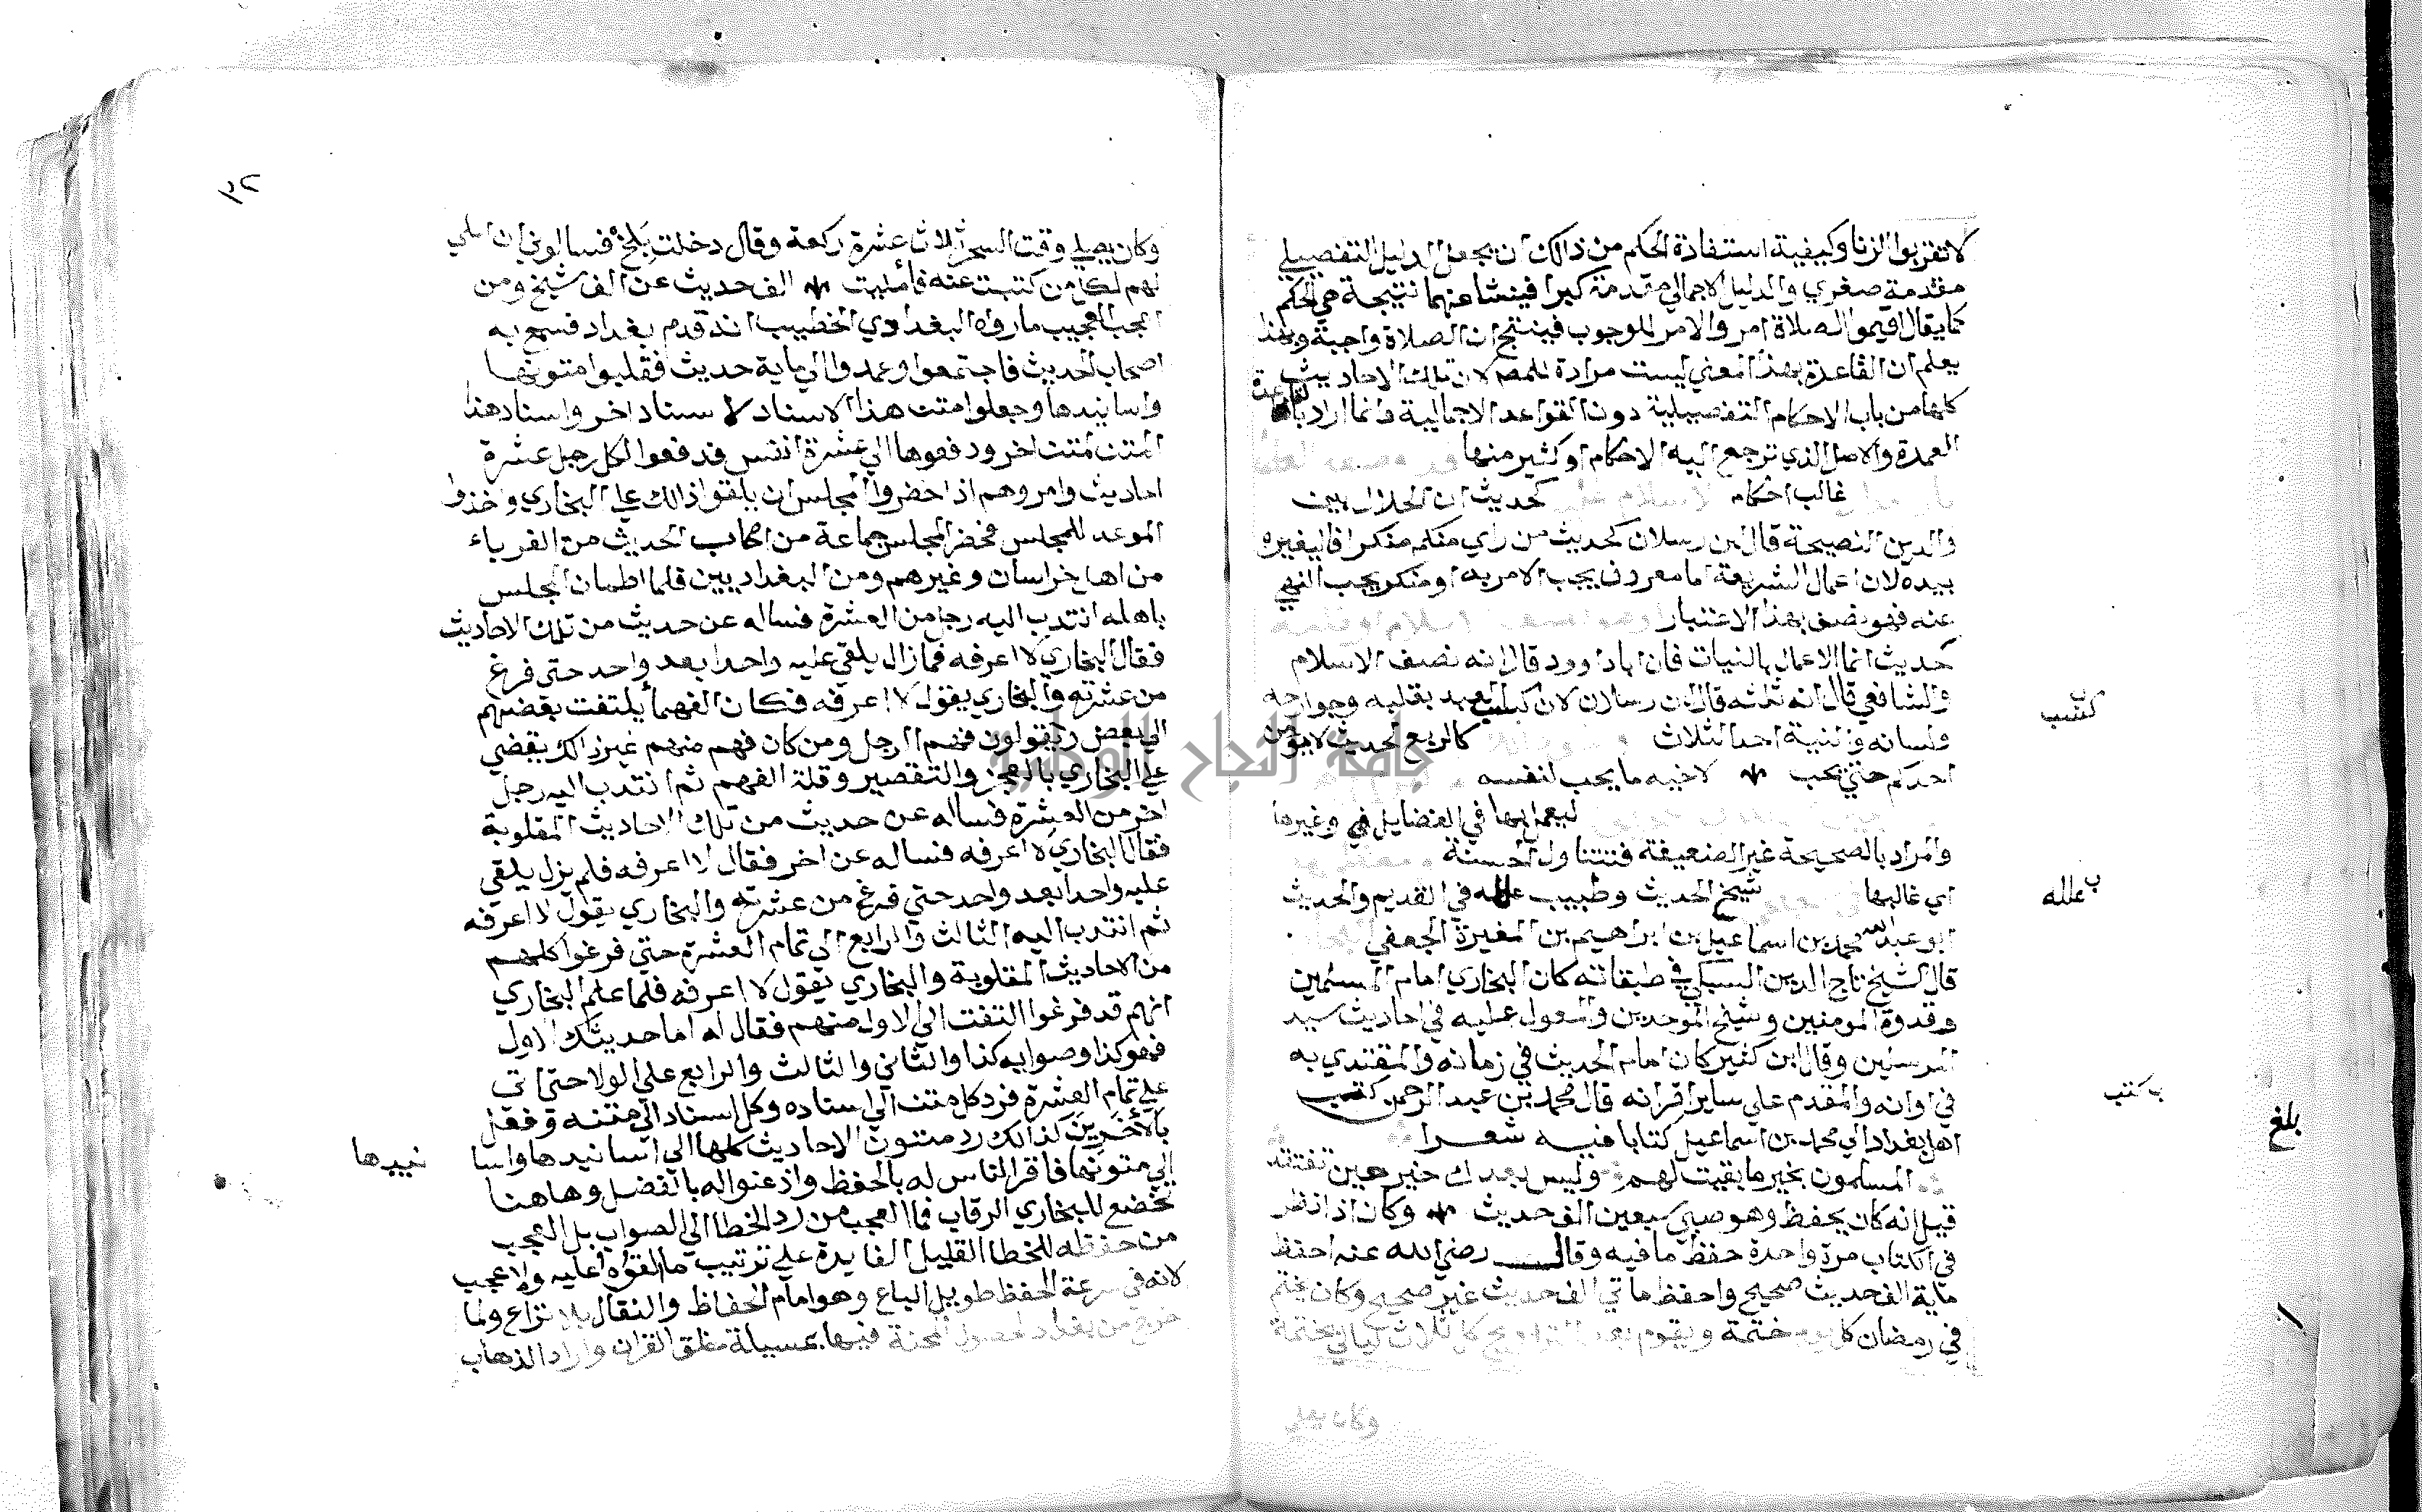 لا تقربوا الزنا وكيفية استفادة الحكم من ذالك ان يجعل الدليل التفصيلي
مقدمة صغري والدليل الاجمالي مقدمة كبرا فينشا عنهما نتيجة هي الحكم
كما يقال اقيموا الصلاة امر والامر للوجوب فينتج ان الصلاة واجبة وبهذا
يعلم ان القاعدة بهذا المعني ليست مرادة للمص لان تلك الاحاديث
كلها من باب الاحكام التفصيلية دون القواعد الاجمالية وانما اراد بالقاعدة
العمدة والاصل الذي ترجع اليه الاحكام او كثير منها
غالب احكام الاسلام كحديث ان الحلال بين
والدين النصيحة قال بن رسلان كحديث من راي منكم منكرا فاليغيره
بيده لان اعمال الشريعة اما معروف يجب الامر به او منكر يجب النهي
عنه فهو نصف بهذا الاعتبار
كحديث انما الاعمال بالنيات فان ابا داوود قال انه نصف الاسلام
والشافعي قال انه ثلثه قال بن رسلان لان كسب العبد بقلبه وجوارحه
ولسانه والنية احد الثلاث كالربع لحديث لا يؤمن
احدكم حتي يحب لاخيه ما يحب لنفسه
ليعمل بها في الفضايل وغيرها
والمراد بالصحيحة غير الضعيفة فتتناول الحسنة
اي غالبها شيخ الحديث وطبيب علله في القديم والحديث
ابو عبد الله محمد بن اسماعيل بن ابراهيم بن المغيرة الجعفي
قال الشيخ تاج الدين السبكي في طبقاته كان البخاري امام المسلمين
وقدوة المومنين وشيخ الموحدين والمعول عليه في احاديث سيد
المرسلين وقال ابن كثير كان امام الحديث في زمانه والمقتدي به
في اوانه والمقدم علي ساير اقرانه قال محمد بن عبد الرحمن كتب
اهل بغداد الي محمد بن اسماعيل كتابا فيه شعرا
المسلمون بخير ما بقيت لهم وليس بعدك خير حين تفتقد
قيل انه كان يحفظ وهو صبي سبعين الف حديث وكان اذا نظر
في الكتاب مرة واحدة حفظ ما فيه وقال رضي الله عنه احفظ
ماية الف حديث صحيح واحفظ ماتي الف حديث غير صحيح وكان يختم
في رمضان كل يوم ختمة ويقوم بعد التراويح كل ثلاث ليالي بختمة
وكان يصلي
كسب
ب علله
ب كتب
بلغ
٣٢
وكان يصلي وقت السحر ثلاث عشرة ركعة وقال دخلت بلخ فسالوني ان املي
لهم لكل من كتبت عنه فأمليت الف حديث عن الف شيخ ومن
العجب العجيب ما رواه البغدادي الخطيب انه قدم بغداد فسمع به
اصحاب الحديث فاجتمعوا وعمدوا الي ماية حديث فقلبوا متونها
واسانيدها وجعلوا متن هذا الاسناد لاسناد اخر واسناد هذا
المتن لمتن اخر ودفعوها الي عشرة انفس فدفعوا لكل رجل عشرة
احاديث وامروهم اذا حضروا المجلس ان يلقوا ذالك علي البخاري واخذوا
الموعد للمجلس فحضر المجلس جماعة من اصحاب الحديث من الغرباء
من اهل خراسان وغيرهم ومن البغداديين فلما اطمان المجلس
باهله انتدب اليه رجل من العشرة فساله عن حديث من تلك الاحاديث
فقال البخاري لا اعرفه فمازال يلقي عليه واحدا بعد واحد حتي فرغ
من عشرته والبخاري يقول لا اعرفه فكان الفهما يلتفت بعضهم
الي بعض ويقولون فهم الرجل ومن كان فهم منهم غير ذالك يقضي
علي البخاري بالعجز والتقصير وقلة الفهم ثم انتدب اليه رجل
اخر من العشرة فساله عن حديث من تلك الاحاديث المقلوبة
فقال البخاري لا اعرفه فنساله عن اخر فقال لا اعرفه فلم يزل يلقي
عليه واحدا بعد واحد حتي فرغ من عشرته والبخاري يقول لا اعرفه
ثم انتدب اليه الثالث والرابع الي تمام العشرة حتي فرغوا كلهم
من الاحاديث المقلوبة والبخاري يقول لا اعرفه فلما علم البخاري
انهم قد فرغوا التفت الي الاول منهم فقال له اما حديثك الاول
فهو كذا وصوابه كذا والثاني والثالث والرابع علي الولا حتي اتي
علي تمام العشرة فرد كل متن الي اسناده وكل اسناد الي متنه وفعل
بالأخرين كذالك رد متون الاحاديث كلها الي اسانيدها واسا نيدها
الي متونها فاقر الناس له بالحفظ واذعنوا له بالفضل وهاهنا
تخضع للبخاري الرقاب فما العجب من رد الخطا الي الصواب بل العجب
من حفظه للخطا القليل الفايدة علي ترتيب ما القوه عليه ولا عجب
لانه في سرعة الحفظ طويل الباع وهو امام الحفاظ والنقال بلا نزاع ولما
خرج من بغداد لحصول المحنة فيها بمسيلة خلق القران واراد الذهاب
جامعة النجاح الوطنية